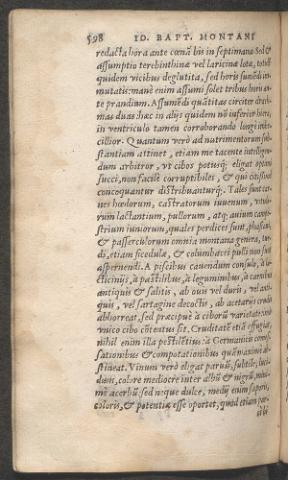 598 IO. BAPT. MONTANI
redacta hora ante cœnā bis in septimana. Sed &
assumptio terebinthinæ vel laricinæ lota,
quidem vicibus deglutita, sed horis sumēdi im-
mutatis: manè enim assumi solet tribus horis an-
te prandium. Assumēdi quātitas circiter drach-
mas duas: hæc in alijs quidem nō inferior hiera,
in ventriculo tamen corroborando longè
cillior. Quantum verò ad nutrimentorum sub-
stantiam attinet, etiam me tacente intelligen-
dum arbitror, vt cibos potusq́; eligat optimi
succi, non facilè corruptibiles, & qui citissimè
concoquantur distribuanturq́;. Tales sunt car-
nes hœdorum, castratorum iuuenum, vitulo-
rum lactantium, pullorum, atq; auium campe-
strium iuniorum, quales perdices sunt, phasiani,
& passerculorum omnia montana genera, tur-
di, etiam ficedulæ, & columbacei pulli non sunt
aspernendi. A piscibus cauendum consulo, à la-
cticinijs, à pastilibus, à leguminibus, à carnibus
antiquis & salitis, ab ouis vel duris, vel anti-
quis, vel sartagine decoctis, ab acetarijs crudis
abhorreat, sed præcipuè à ciborū varietate: sed
vnico cibo cōtentus sit. Cruditatē etiā effugiat,
nihil enim illa pestilētius: à Germanicis comes-
sationibus & compotationibus quàm maximè ab-
stineat. Vinum verò eligat paruū, subtile, luci-
dum, colore mediocre inter albū & nigrū, mini-
mè acerbū sed neque dulce, medij enim saporis,
coloris, & potentiæ esse oportet, quòd etiam par-